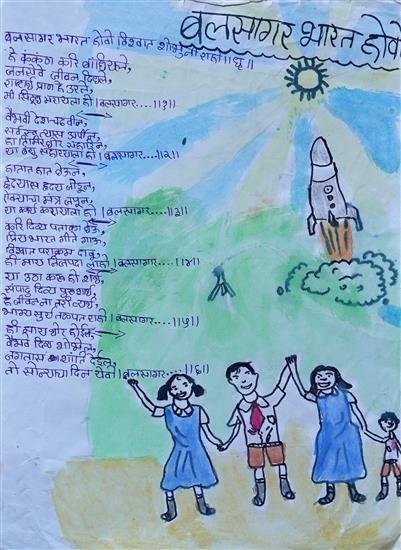 बलसागर भारत होवो
बलसागर भारत होवो विश्वात शोभुनी राहो ॥धृ॥
हे कंकण करि बांधियले,
जनसेवे जीवन दिधले,
राष्ट्रार्थ प्राण हे उरले,
मी सिद्ध मरायाला हो। बलसागर....॥१॥
वैभवी देश चढवीन,
सर्वस्व त्यास अर्पीन,
हा तिमिर घोर संहारिन,
या बंधु सहाय्याला हो। बलसागर....॥२॥
हातात हात घेऊन,
हृदयास हृदय जोडून,
ऐक्याचा मंत्र जपून,
या कार्य करायाला हो। बलसागर....॥३॥
करि दिव्य पताका घेऊ,
प्रिय भारत गीते गाऊ,
विश्वात पराक्रम दावू,
ही माय निजपदा लाहो। बलसागर....॥४॥
या उठा करू हो शर्थ,
संपादु दिव्य पुरुषार्थ,
हे जीवन ना तरि व्यर्थ,
भाग्य सूर्य तळपत राहो। बलसागर....॥५॥
ही माय थोर होईल,
वैभवे दिव्य शोभेल,
जगतास शांति देईल,
तो सोन्याचा दिन येवो। बलसागर....॥६॥